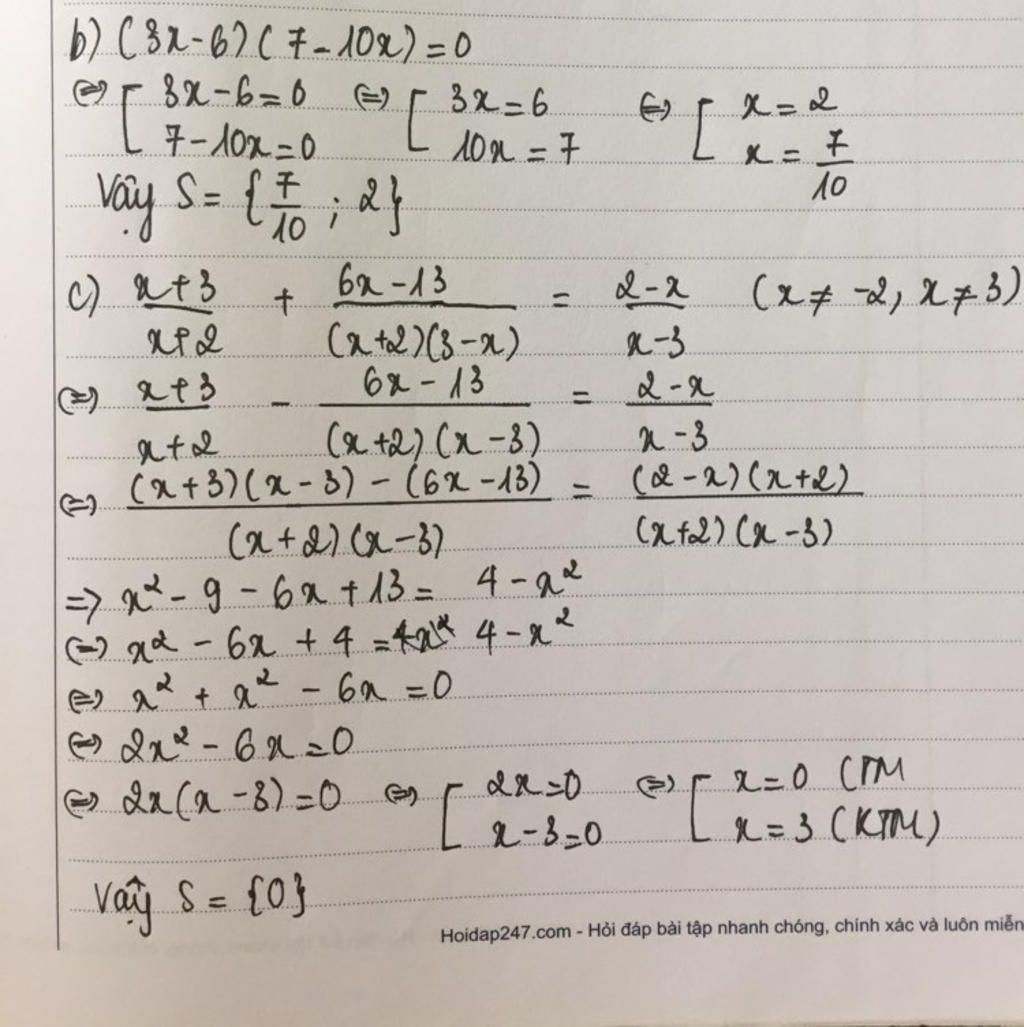 b) (3x-6)(7-10x)=0
⇔ [ 3x-6=0 ⇔ [ 3x=6 ⇔ [ x=2
7-10x=0 10x=7 x=7/10
Vậy S={7/10; 2}
c) (x+3)/(x+2) + (6x-13)/((x+2)(3-x)) = (2-x)/(x-3) (x≠-2, x≠3)
⇔ (x+3)/(x+2) - (6x-13)/((x+2)(x-3)) = (2-x)/(x-3)
⇔ ((x+3)(x-3)-(6x-13))/((x+2)(x-3)) = ((2-x)(x+2))/((x+2)(x-3))
⇒ x²-9-6x+13= 4-x²
⇔ x²-6x+4= 4-x²
⇔ x²+x²-6x=0
⇔ 2x²-6x=0
⇔ 2x(x-3)=0 ⇔ [ 2x=0 ⇔ [ x=0 (TM
x-3=0 x=3 (KTM)
Vậy S={0}
Hoidap247.com - Hỏi đáp bài tập nhanh chóng, chính xác và luôn miễn